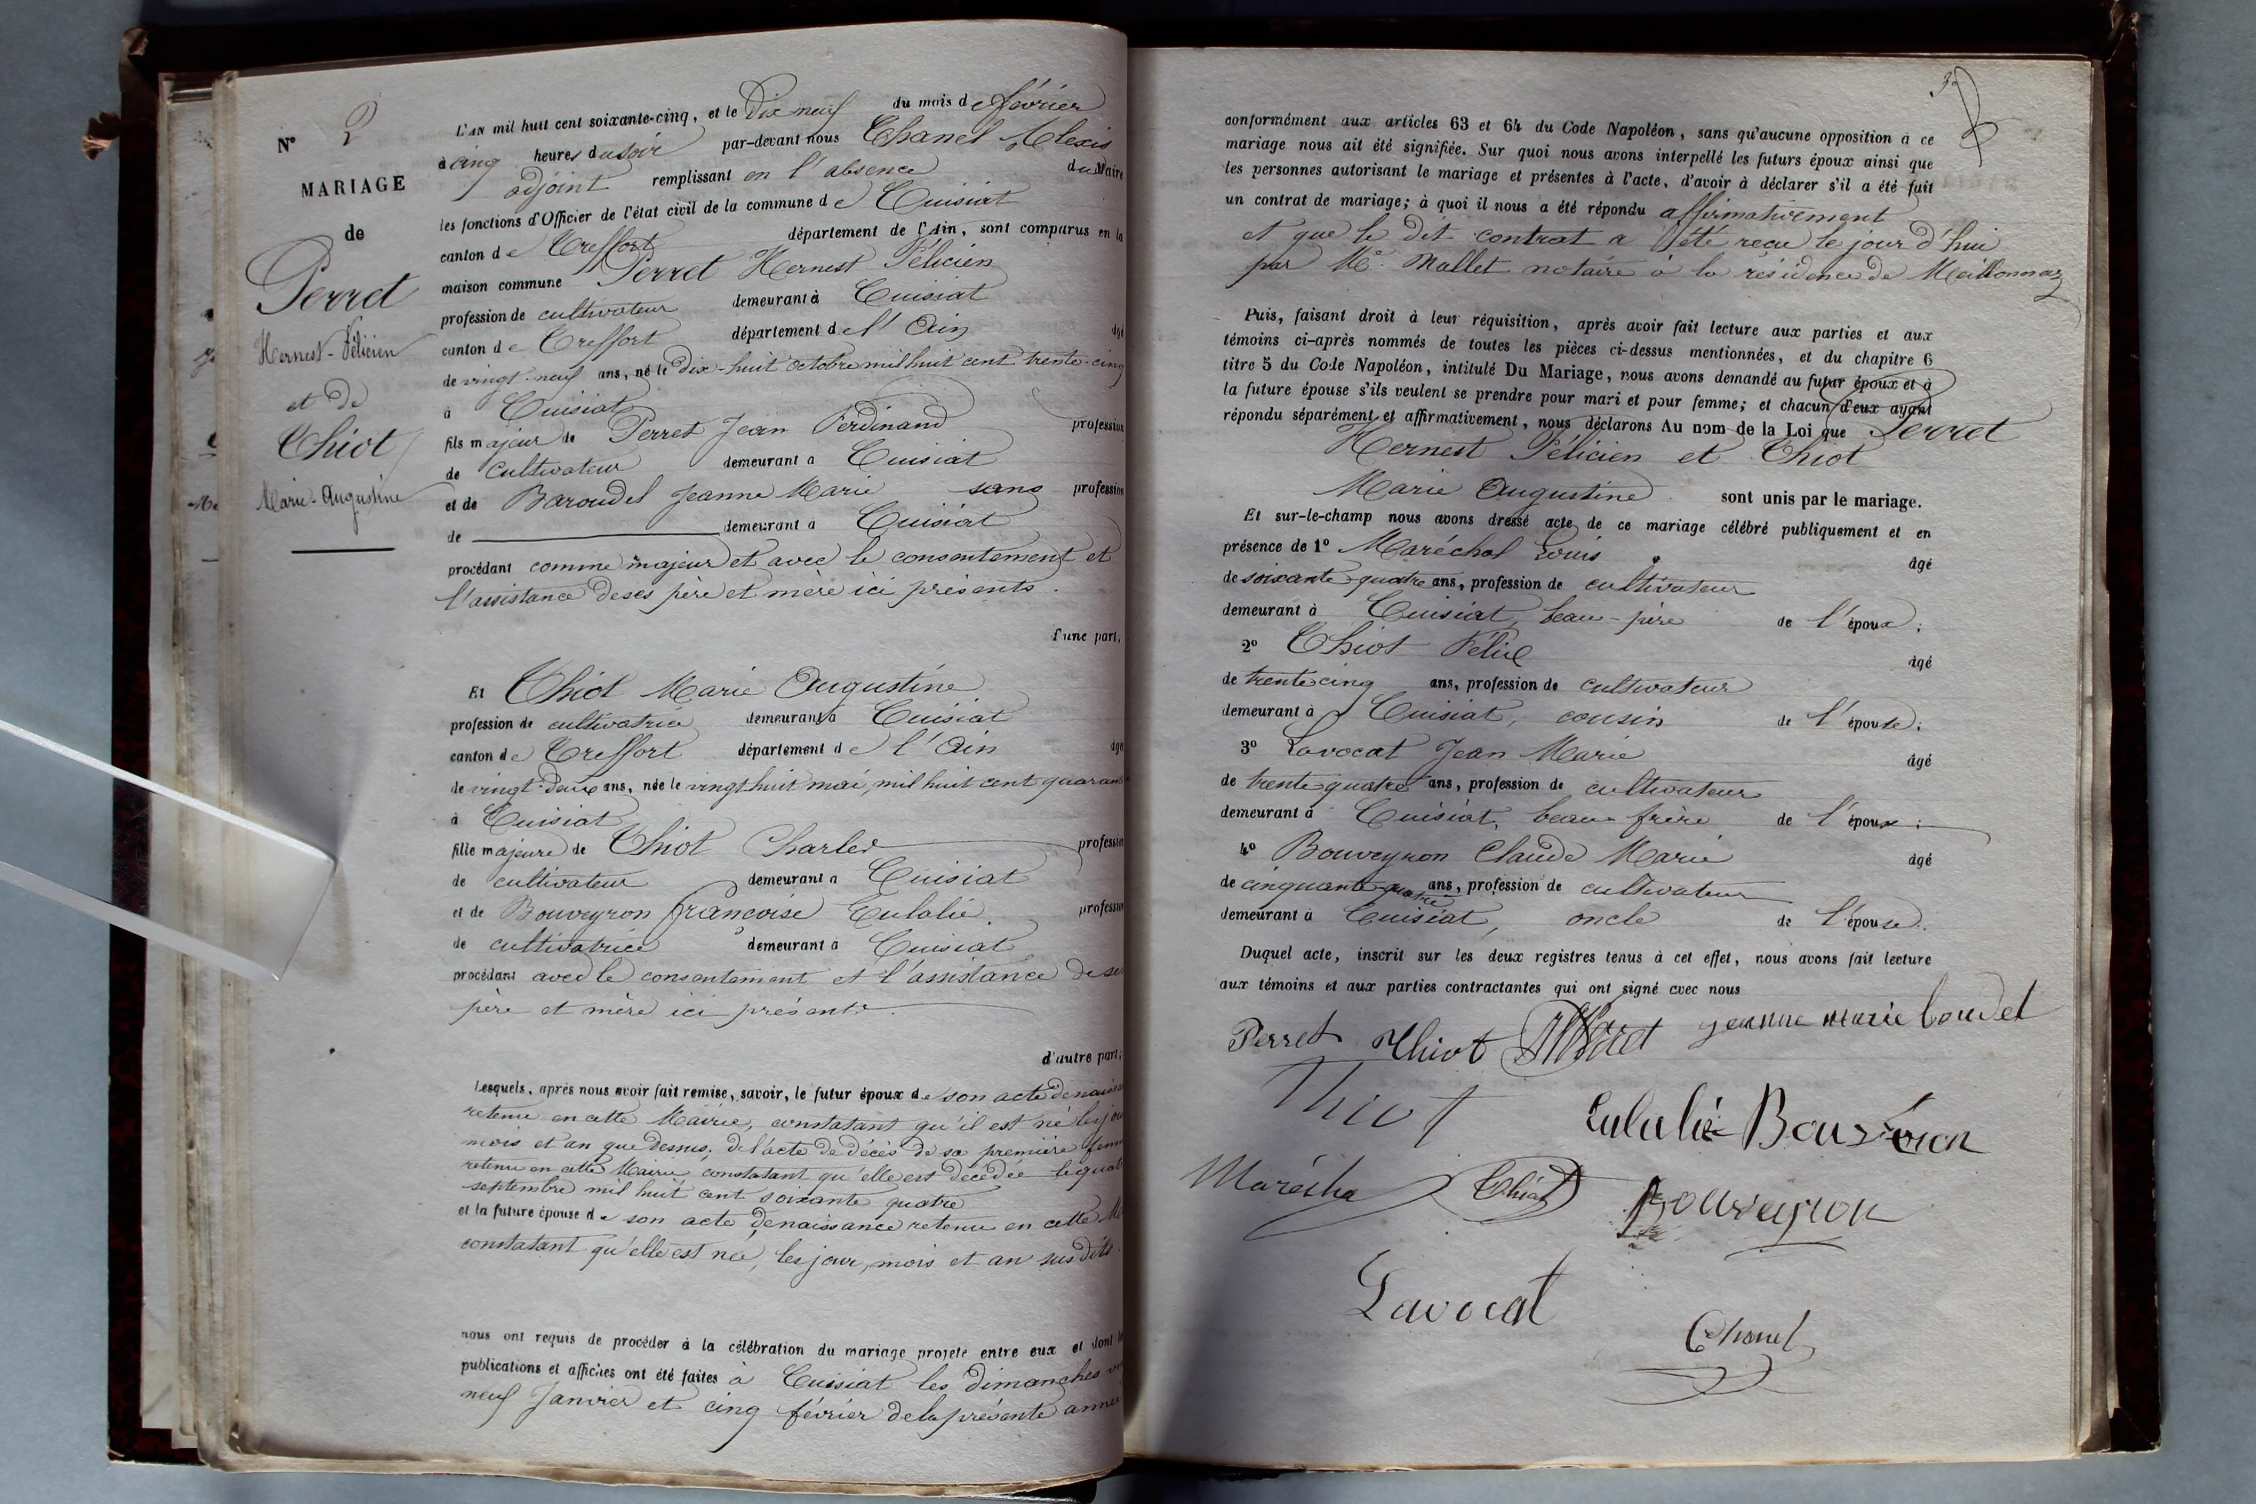 N° 2
MARIAGE
de
Perret
Hernest-Félicien
et de
Thiot
Marie-Augustine
L'AN mil huit cent soixante-cinq, et le Dix neuf du mois de février
à cinq heures du soir par-devant nous Chanel Alexis
adjoint remplissant en l'absence du Maire
les fonctions d'Officier de l'état civil de la commune de Cuisiat
canton de Treffort département de l'Ain, sont comparus en la
maison commune Perret Hernest Félicien
profession de cultivateur demeurant à Cuisiat
canton de Treffort département de l'Ain âgé
de vingt-neuf ans, né le dix-huit octobre mil huit cent trente-cinq
à Cuisiat
fils majeur de Perret Jean Ferdinand profession
de cultivateur demeurant à Cuisiat
et de Baroudel Jeanne Marie sans profession
de demeurant à Cuisiat
procédant comme majeur et avec le consentement et
l'assistance de ses père et mère ici présents.
d'une part,
Et Thiot Marie Augustine
profession de cultivatrice demeurant à Cuisiat
canton de Treffort département de l'Ain âgé
de vingt-deux ans, née le vingt huit mai, mil huit cent quaran
à Cuisiat
fille majeure de Thiot Charles profession
de cultivateur demeurant à Cuisiat
et de Bouveyron françoise Eulalie. profession
de cultivatrice demeurant à Cuisiat
procédant avec le consentement et l'assistance de ses
père et mère ici présents.
d'autre part;
Lesquels, après nous avoir fait remise, savoir, le futur époux de son acte de naissan
retenu en cette Mairie, constatant qu'il est né les jou
mois et an que dessus; de l'acte de décès de sa première femm
retenu en cette Mairie constatant qu'elle est décédée le quat
septembre mil huit cent soixante quatre
et la future épouse de son acte de naissance retenu en cette M
constatant qu'elle est née, les jour, mois et an sus dits.
nous ont requis de procéder à la célébration du mariage projeté entre eux et dont le
publications et affiches ont été faites à Cuisiat les dimanches vin
neuf Janvier et cinq février de la présente année
conformément aux articles 63 et 64 du Code Napoléon, sans qu'aucune opposition à ce
mariage nous ait été signifiée. Sur quoi nous avons interpellé les futurs époux ainsi que
les personnes autorisant le mariage et présentes à l'acte, d'avoir à déclarer s'il a été fait
un contrat de mariage; à quoi il nous a été répondu affirmativement
et que le dit contrat a été reçu le jour d'hui
par Me. Mallet notaire à la résidence de Meillonnaz
Puis, faisant droit à leur réquisition, après avoir fait lecture aux parties et aux
témoins ci-après nommés de toutes les pièces ci-dessus mentionnées, et du chapitre 6
titre 5 du Code Napoléon, intitulé Du Mariage, nous avons demandé au futur époux et à
la future épouse s'ils veulent se prendre pour mari et pour femme; et chacun d'eux ayant
répondu séparément et affirmativement, nous déclarons Au nom de la Loi que Perret
Hernest Félicien et Thiot
Marie Augustine sont unis par le mariage.
Et sur-le-champ nous avons dressé acte de ce mariage célébré publiquement et en
présence de 1° Maréchal Louis âgé
de soixante-quatre ans, profession de cultivateur
demeurant à Cuisiat, beau-père de l'époux;
2° Thiot Félix âgé
de trente cinq ans, profession de cultivateur
demeurant à Cuisiat, cousin de l'épouse;
3° Lavocat Jean Marie âgé
de trente quatre ans, profession de cultivateur
demeurant à Cuisiat, beau-frère de l'époux;
4° Bouveyron Claude Marie âgé
de cinquante quatre ans, profession de cultivateur
demeurant à Cuisiat, oncle de l'épouse.
Duquel acte, inscrit sur les deux registres tenus à cet effet, nous avons fait lecture
aux témoins et aux parties contractantes qui ont signé avec nous
Perret Thiot jeanne marie boudel
Thiot Eulalie Bouveron
Marécha Thiot Bouveyron
Lavocat
Chanel